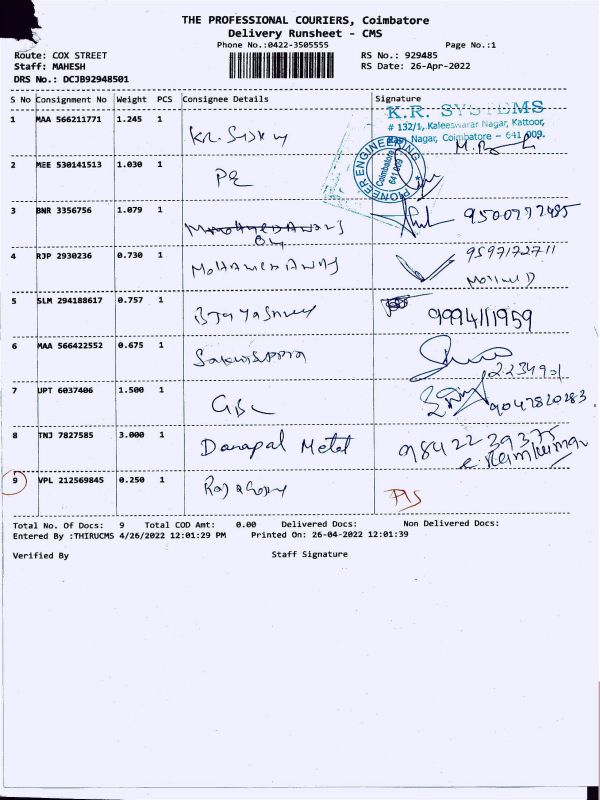 THE PROFESSIONAL COURIERS, Coimbatore
Delivery Runsheet - CMS
Phone No.:0422-3505555 Page No.:1
Route: COX STREET RS No.: 929485
Staff: MAHESH RS Date: 26-Apr-2022
DRS No.: DCJB92948501
S No Consignment No Weight PCS Consignee Details Signature
K.R. SYSTEMS
# 132/1, Kaleeswarar Nagar, Kattoor,
Nagar, Coimbatore - 641 009.
1 MAA 566211771 1.245 1
PIONEER ENGINEERING
Coimbatore
641 009
2 MEE 530141513 1.030 1 PE
3 BNR 3356756 1.079 1
4 RJP 2930236 0.730 1 9597172711
5 SLM 294188617 0.757 1 9994111959
6 MAA 566422552 0.675 1
7 UPT 6037406 1.500 1 GBC 9047820283
8 TNJ 7827585 3.000 1 Danapal Metal 9842239375
9 VPL 212569845 0.250 1
Total No. Of Docs: 9 Total COD Amt: 0.00 Delivered Docs: Non Delivered Docs:
Entered By :THIRUCMS 4/26/2022 12:01:29 PM Printed On: 26-04-2022 12:01:39
Verified By Staff Signature